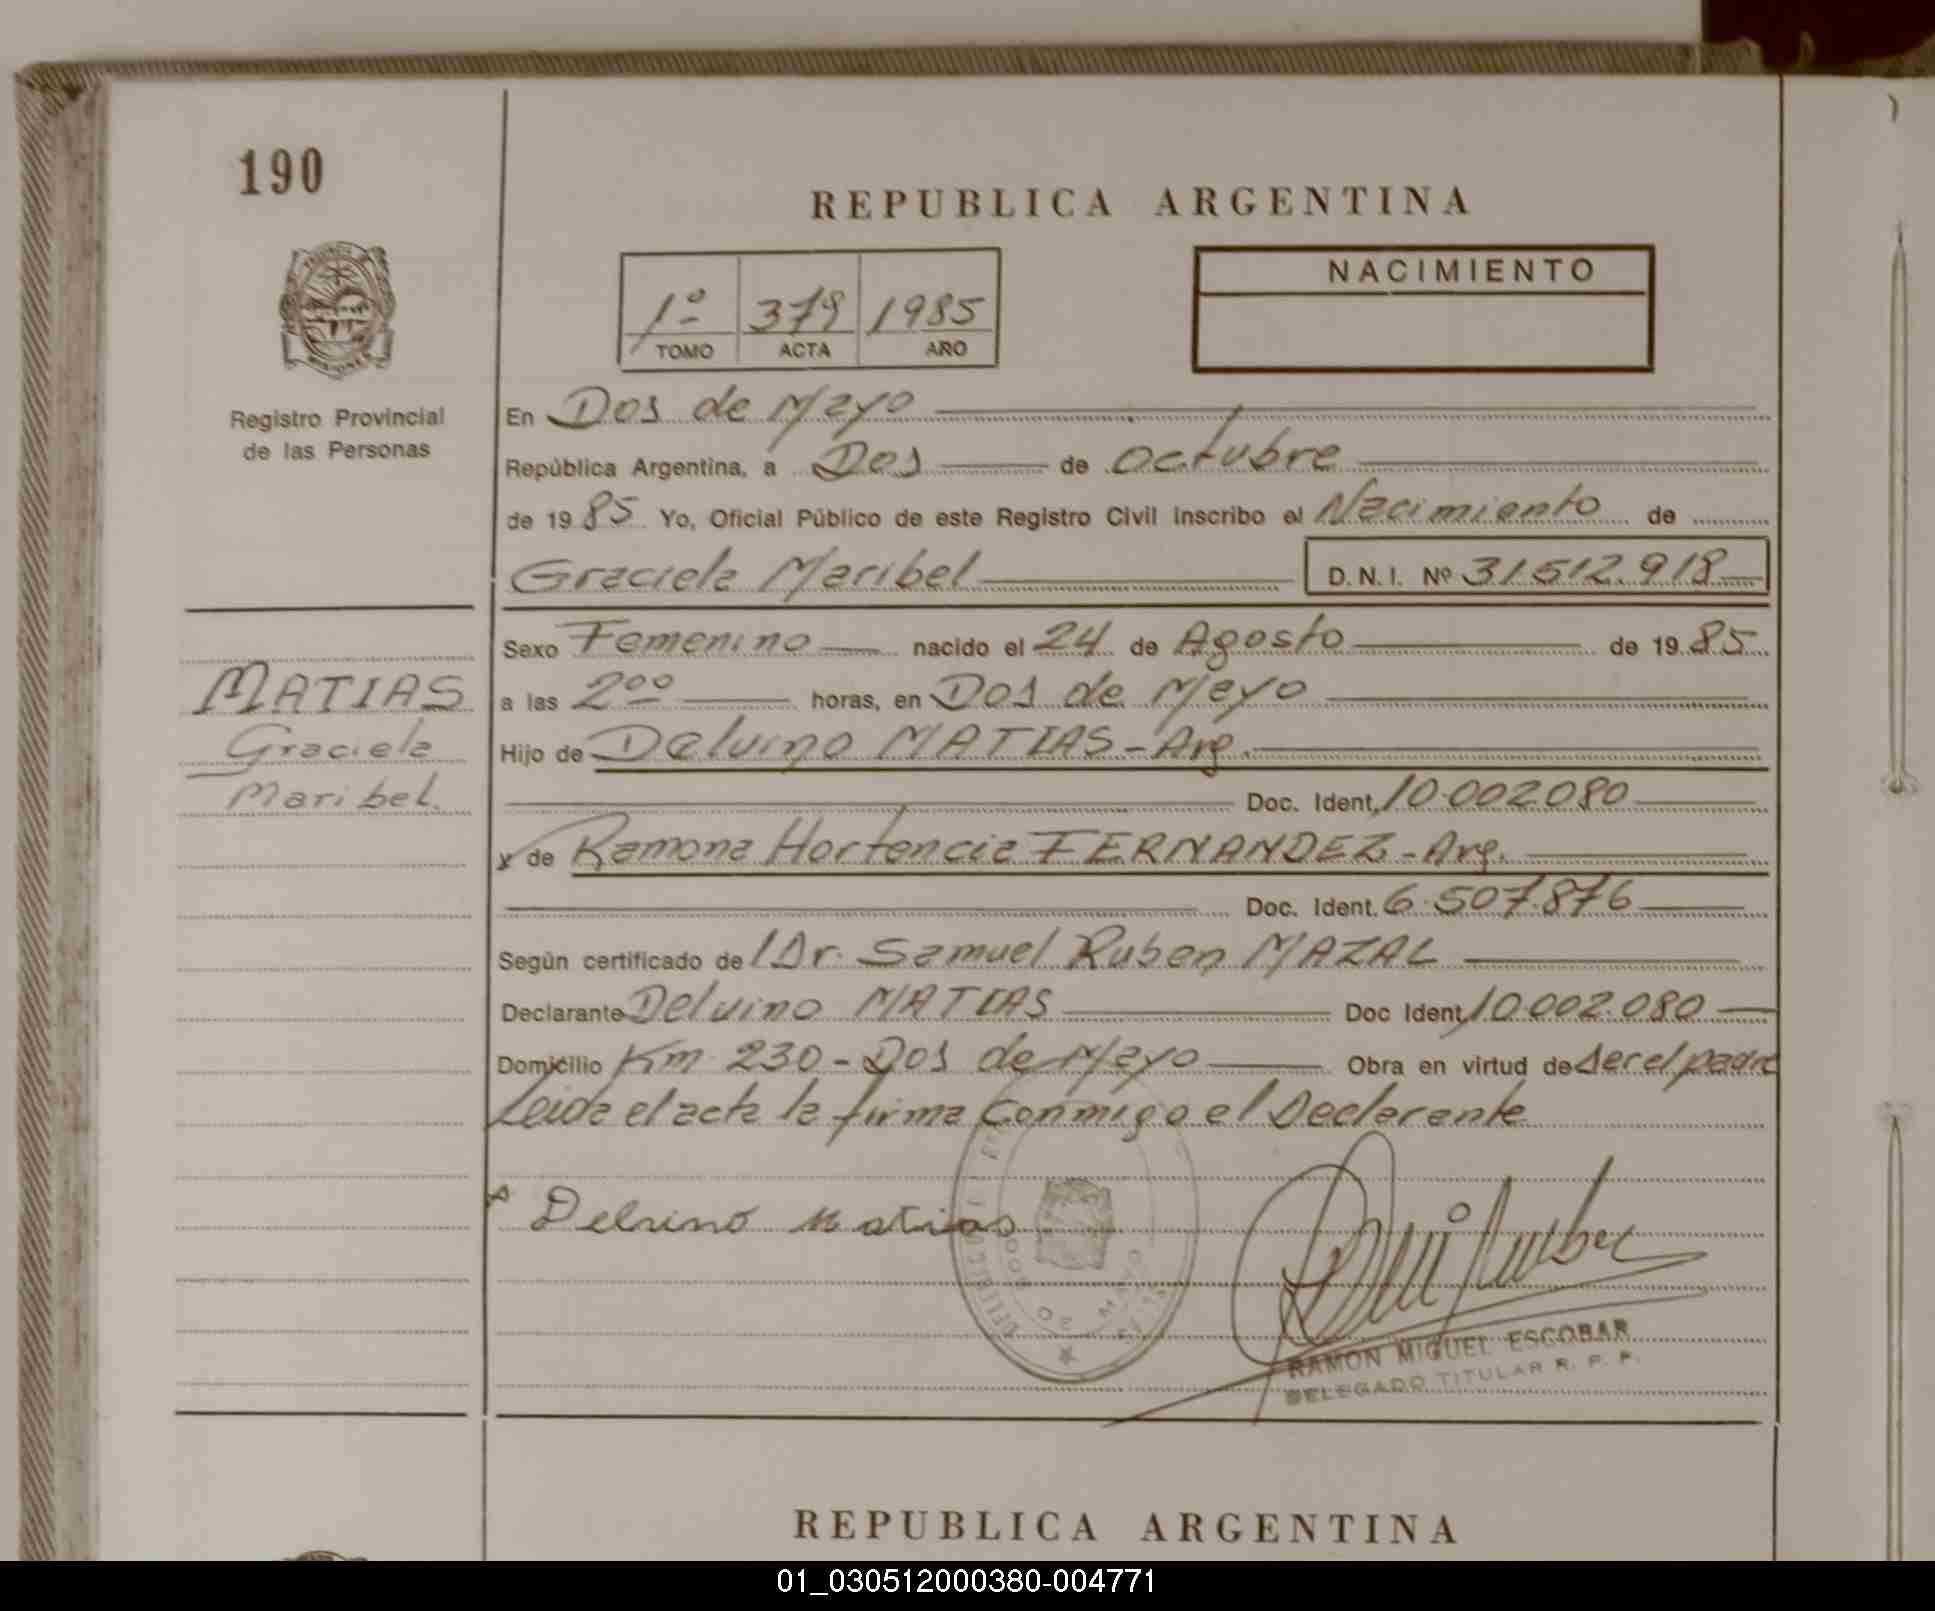 190
REPUBLICA ARGENTINA
NACIMIENTO
1º 379 1985
TOMO ACTA AÑO
Registro Provincial
de las Personas
En Dos de Mayo
República Argentina, a Dos de octubre
de 1985 Yo, Oficial Público de este Registro Civil Inscribo el Nacimiento de
Graciela Maribel D.N.I. Nº 31.512.918
Sexo Femenino nacido el 24 de Agosto de 1985
MATIAS
Graciela
Maribel.
a las 2ºº horas, en Dos de Mayo
Hijo de Deluino MATIAS - Arg.
Doc. Ident. 10.002.080
y de Ramona Hortencia FERNANDEZ - Arg.
Doc. Ident. 6.507.876
Según certificado de Dr. Samuel Ruben MAZAL
Declarante Deluino MATIAS Doc Ident. 10.002.080
Domicilio Km 230 - Dos de Mayo Obra en virtud de ser el padre
Leida el acta la firma Conmigo el Declarante
Deluino Matias
DOS DE MAYO
RAMON MIGUEL ESCOBAR
DELEGADO TITULAR R. P. P.
REPUBLICA ARGENTINA
01_030512000380-004771